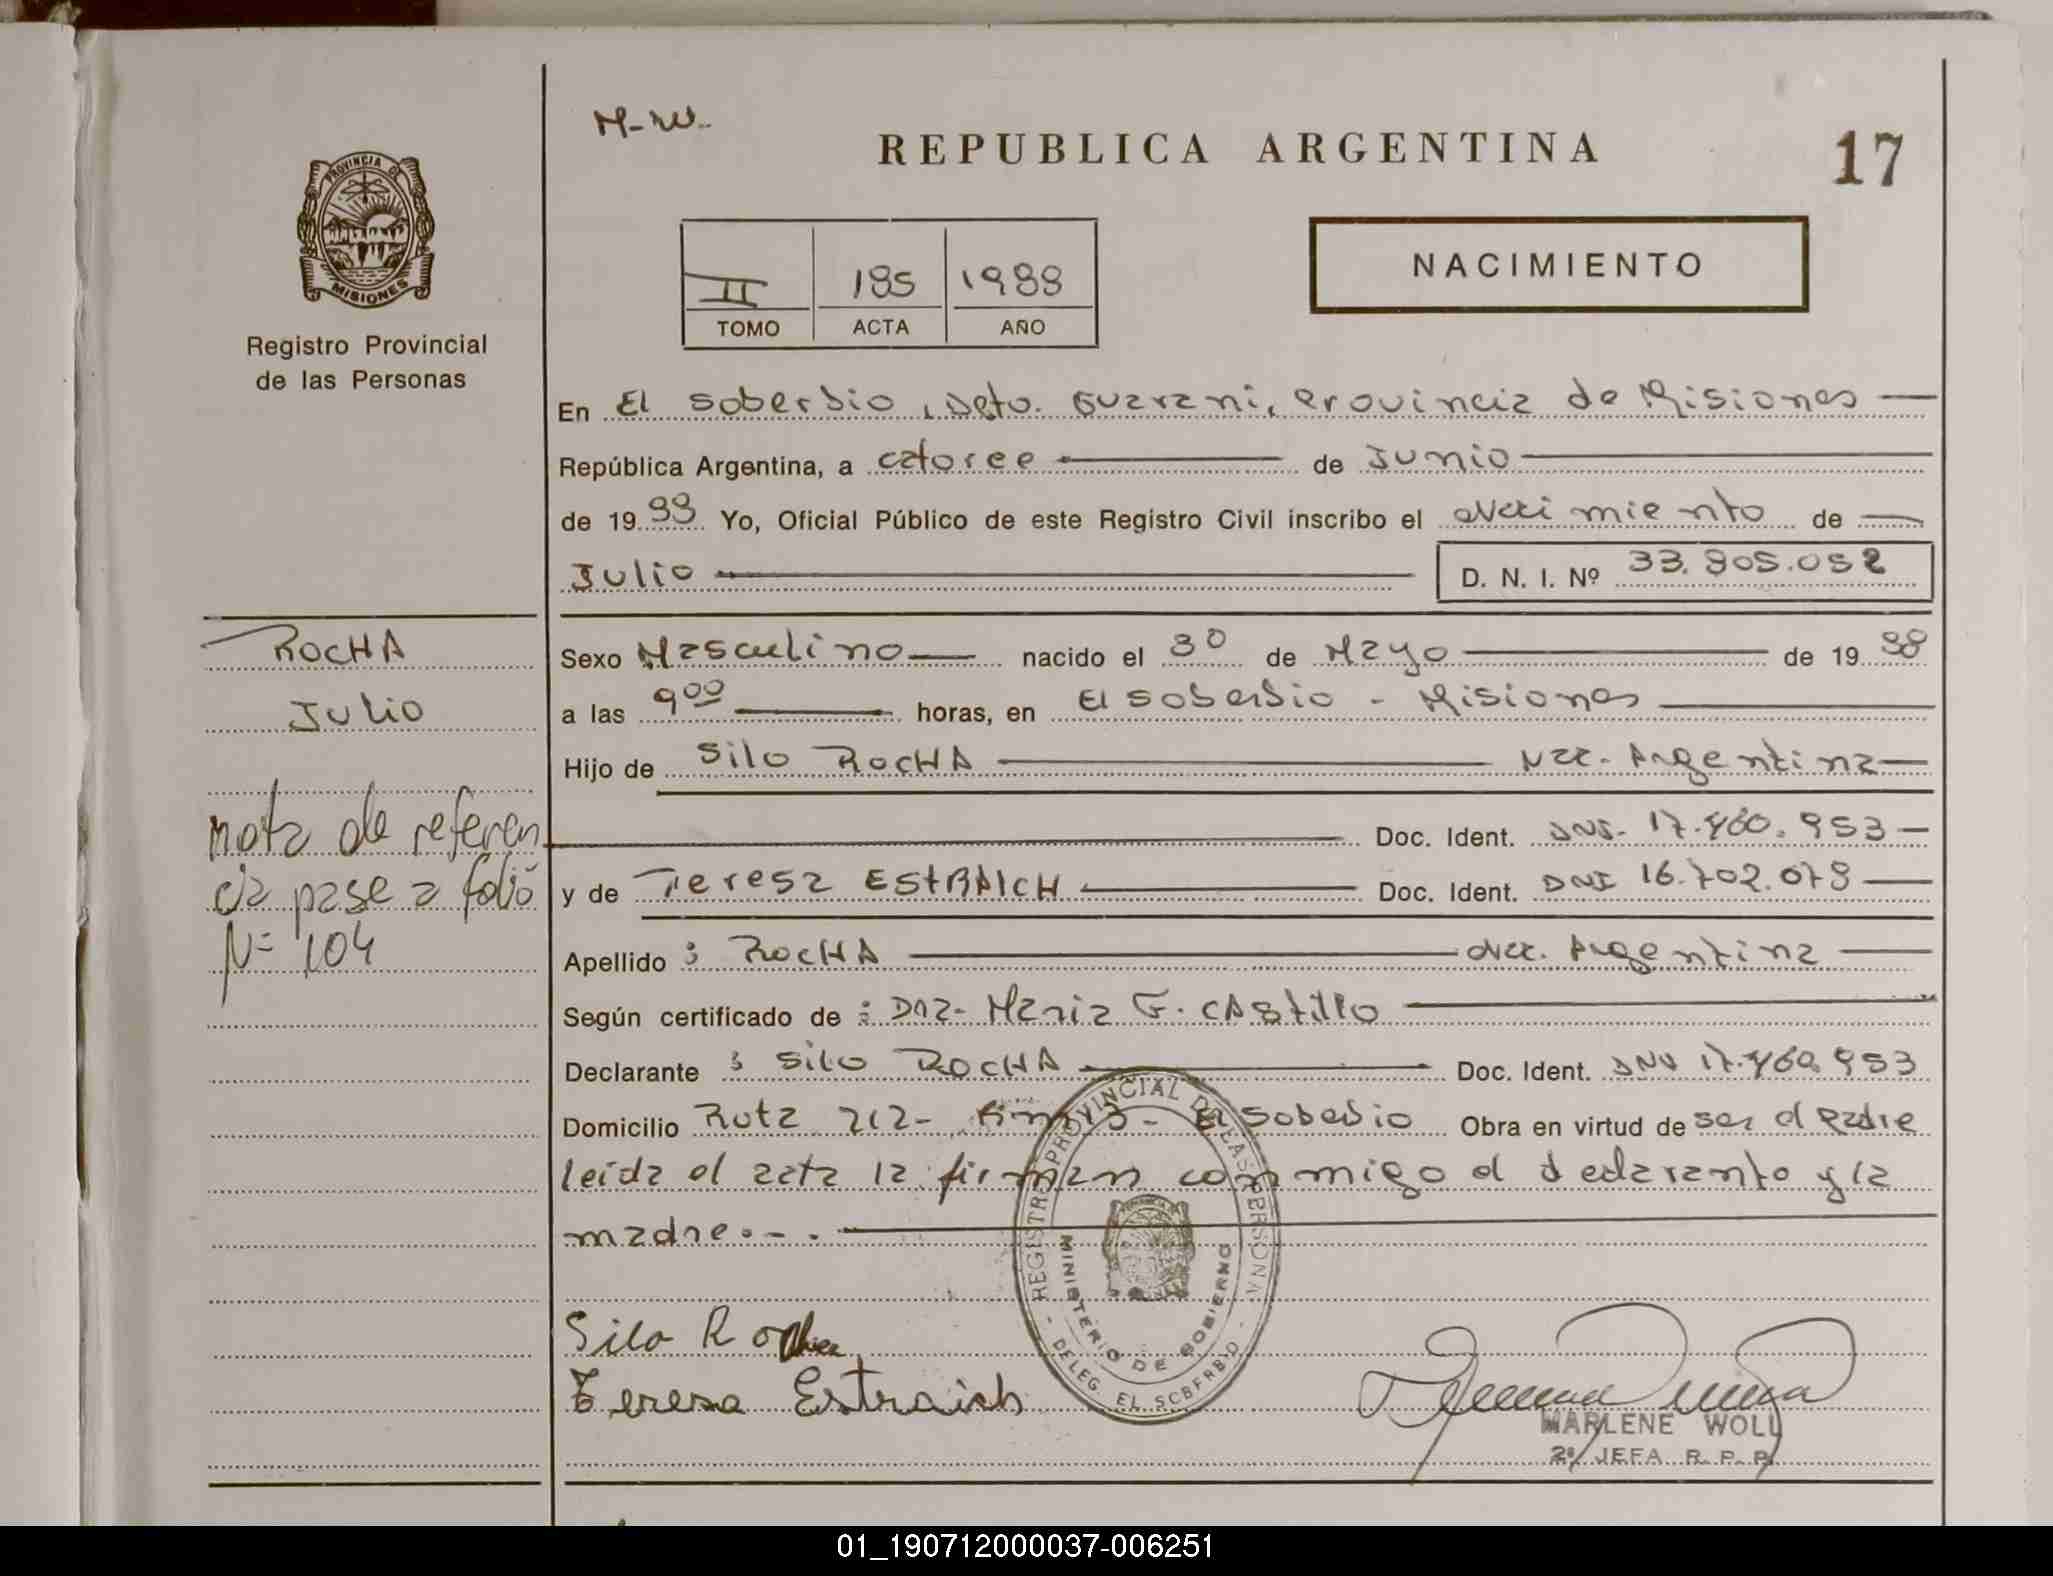 M-W.
REPUBLICA ARGENTINA
17
PROVINCIA DE MISIONES
Registro Provincial
de las Personas
II 185 1988
TOMO ACTA AÑO
NACIMIENTO
En El Soberbio, Dpto. Guarani, Provincia de Misiones
República Argentina, a catorce de Junio
de 1988 Yo, Oficial Público de este Registro Civil inscribo el Nacimiento de
Julio D. N. I. Nº 33.905.052
ROCHA
Julio
nota de referen
cia pase a folio
Nº 104
Sexo Masculino nacido el 30 de Mayo de 1988
a las 9 00 horas, en El Soberbio - Misiones
Hijo de Silo ROCHA Nac. Argentina
Doc. Ident. DNI. 17.460.953
y de Teresa ESTRAICH Doc. Ident. DNI 16.702.078
Apellido : ROCHA Nac. Argentina
Según certificado de : Dra. Maria G. CAStillo
Declarante : Silo ROCHA Doc. Ident. DNI 17.460.953
Domicilio Ruta 212- El Soberbio Obra en virtud de ser el Padre
leida el acta la firman conmigo el declarante y la
madre.-.
Silo Rocha
Teresa Estraich
REGISTRO PROVINCIAL DE LAS PERSONAS
MINISTERIO DE GOBIERNO
- DELEG. EL SOBERBIO -
MARLENE WOLL
2º JEFA R. P. P.
01_190712000037-006251